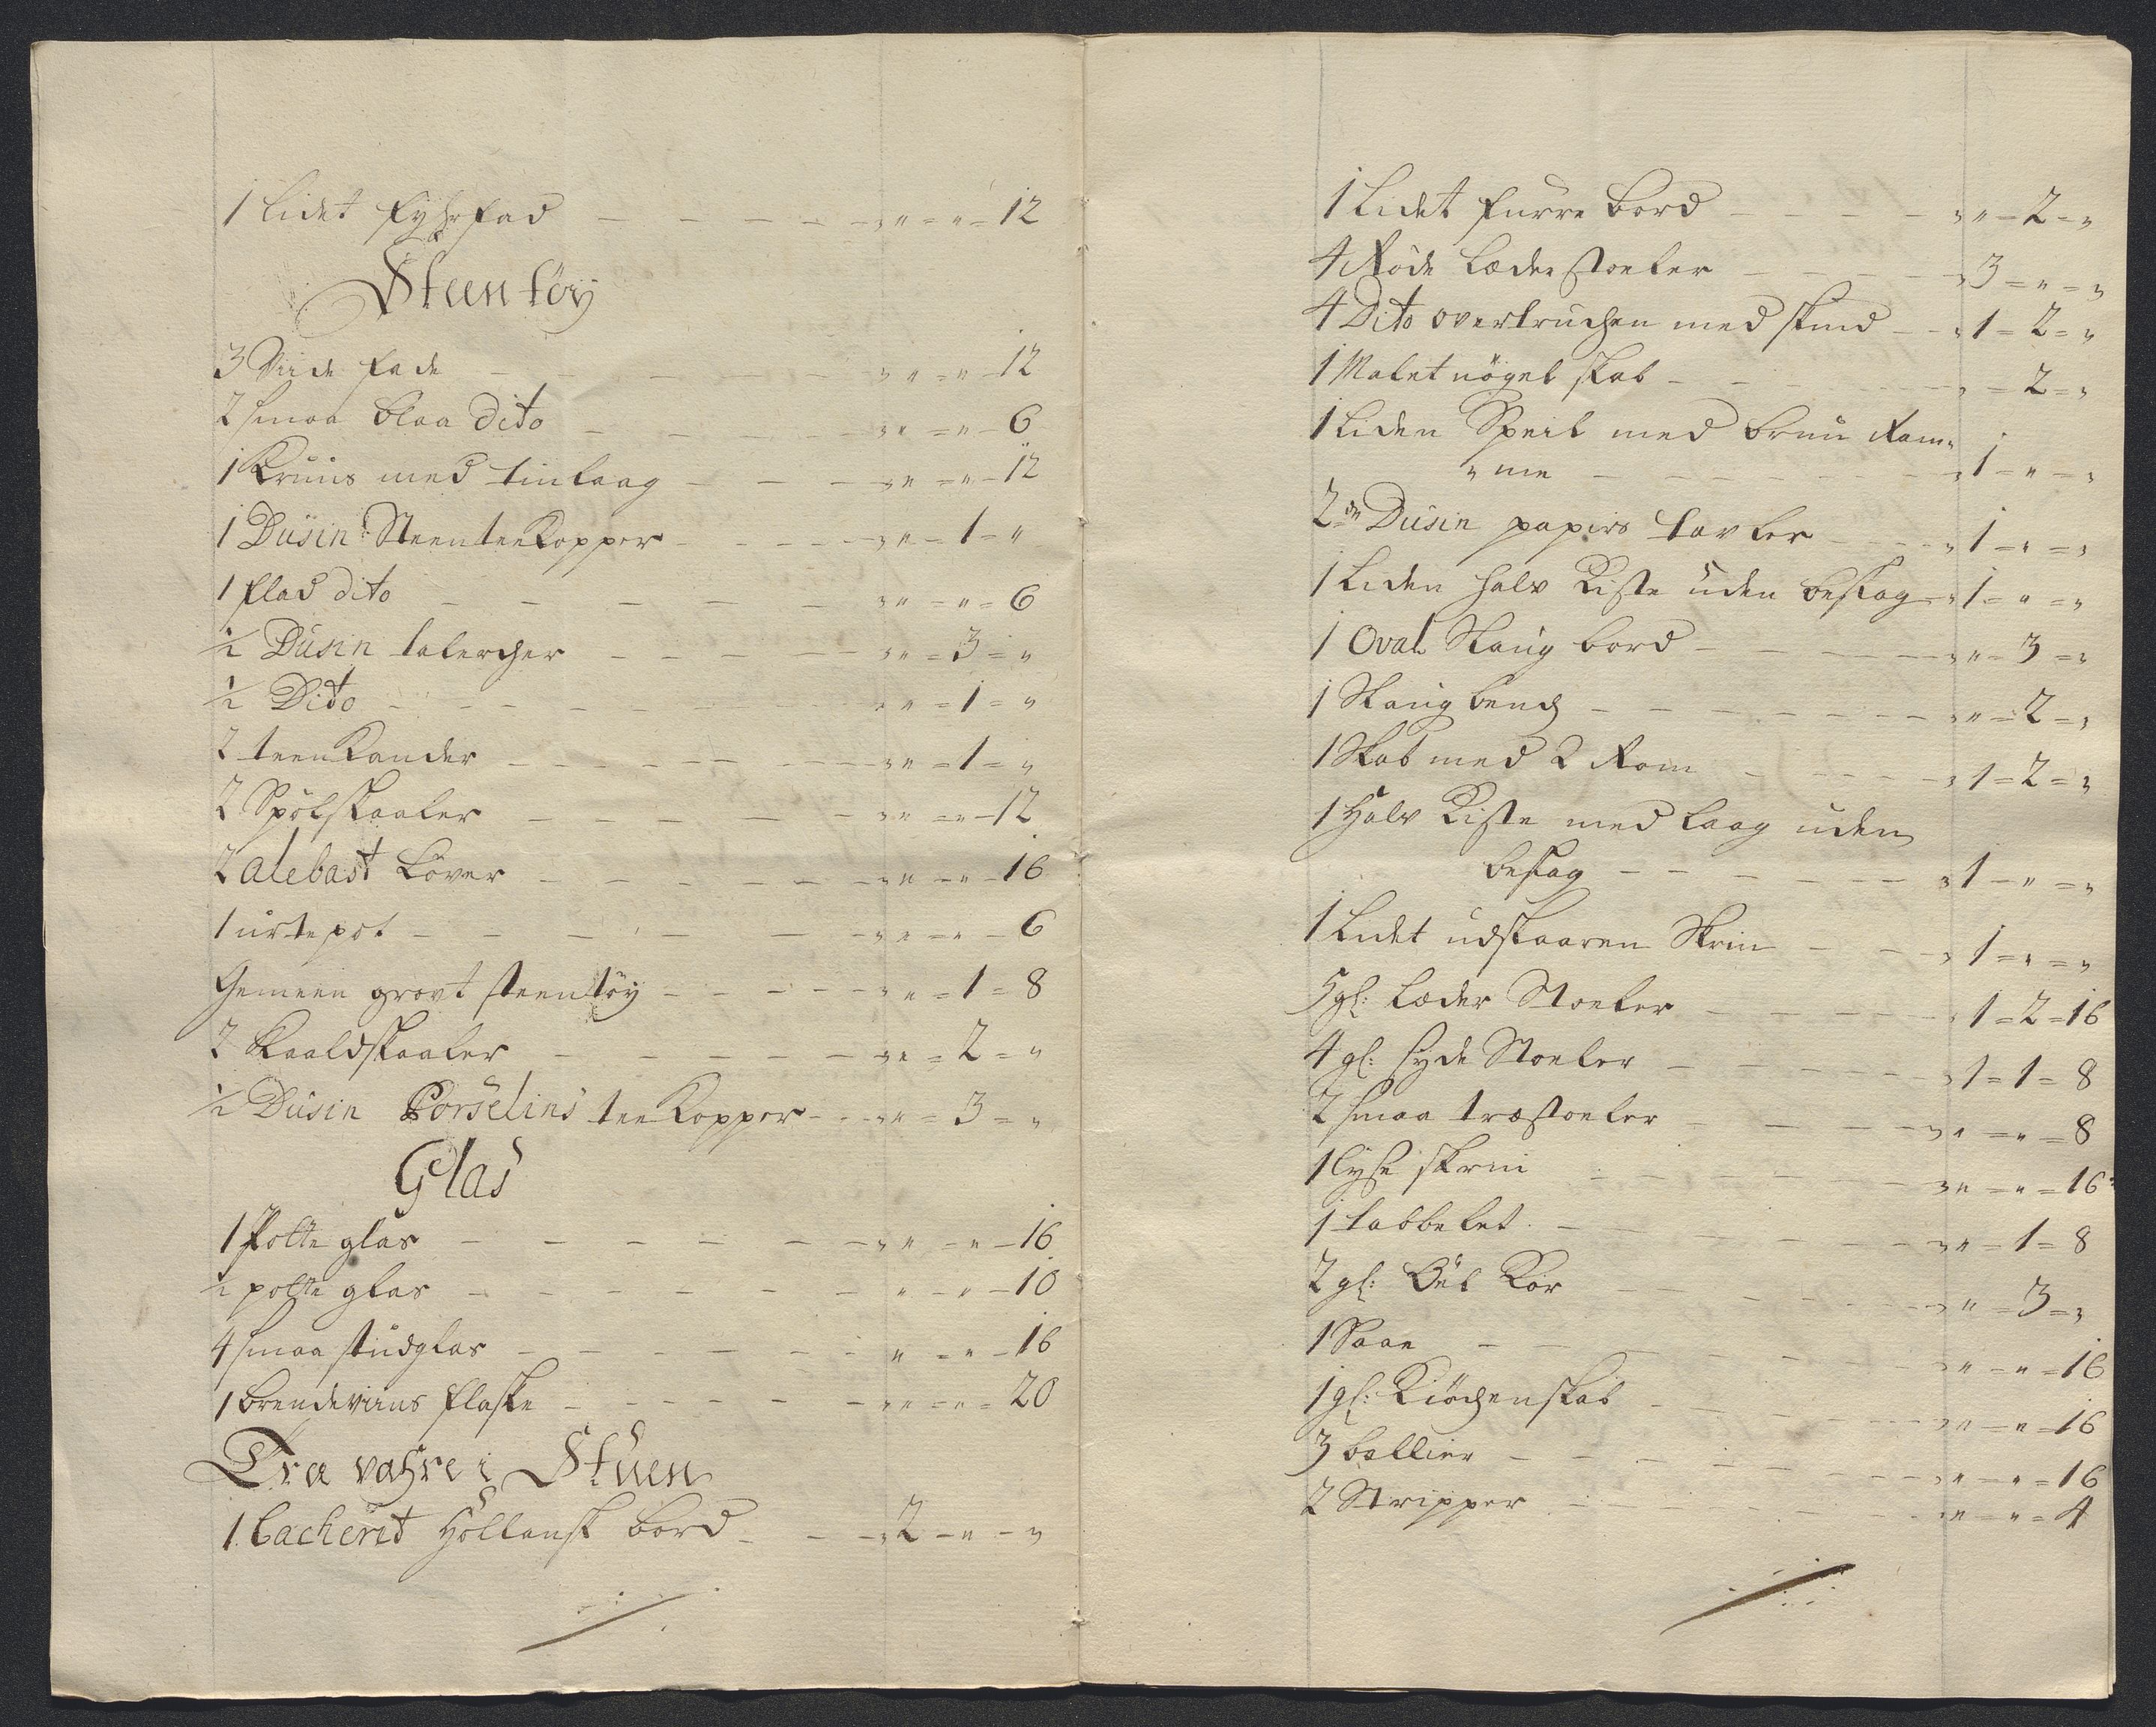 1 lidet fyhrfad — — — — " " = " - 12
Steentöy
3 Viide fade — — — — " " = " - 12
2 smaa blaa Dito — — — — " " = " - 6
1 Kruus med tinlaag — — — " " = " - 12
1 Dusin Steenteekopper — — — " " - 1 - "
1 flad dito — — — — — " " - " = 6
½ Dusin talercher — — — — " " = 3 = "
½ Dito — — — — — " " = 1 = "
2 teekander — — — — — " " = 1 = "
2 Spölskaaler — — — — — " " = " - 12
2 alebast Löver — — — — — " " - " - 16
1 urtepot — — — — — " " = " - 6
Gemeen grovt steentöy — — — — " " = 1 = 8
2 Kaaldskaaler — — — — — " " = 2 = "
½ Dusin Porselins teekopper — — " " = 3 = "
Glas
1 Potte glas — — — — — " " = " - 16
½ potte glas — — — — — " - " - 10
4 smaa studglas — — — — — " = " - 16
1 brendeviins flaske — — — — " " = " = 20
Træ vahre i Stuen
1 Lacherit Hollansk bord — — — " 2 - " - "
1 Lidet furre bord — — — — " " - 2 - "
4 Röde Læderstoeler — — — — " 3 = " = "
4 Dito overtruchen med skind — — " 1 = 2 = "
1 Malet nögel skab — — — — " = 2 = "
1 Liden Speil med bruun Ram"
" me — — — — — " 1 - " - "
2 de Dusin papiirs tavler — — — " 1 - " = "
1 Liden halv Kiste uden beslag — " 1 = " = "
1 Oval Slaug bord — — — — " " - 3 = "
1 Slaug bench — — — — — " " = 2 = "
1 Skab med 2 Rom — — — — " 1 = 2 = "
1 Halv Kiste med laag uden
beslag — — — — — " 1 - " = "
1 Lidet udskaaren Skrin — — — " 1 = " = "
5 gl: Læder Stoeler — — — — " 1 = 2 = 16
4 gl: hyde Stoeler — — — — " 1 = 1 = 8
2 smaa træstoeler — — — — " " = " = 8
1 lyse skrin — — — — — " " = " = 16
1 tabbelet — — — — — " " = 1 = 8
2 gl: Öel Kar — — — — — " " = 3 = "
1 Saae — — — — — " " - " = 16
1 gl: Kiöchenskab — — — — " " - " - 16
3 ballier — — — — — " " - " = 16
2 Stripper — — — — — " " - " = 4